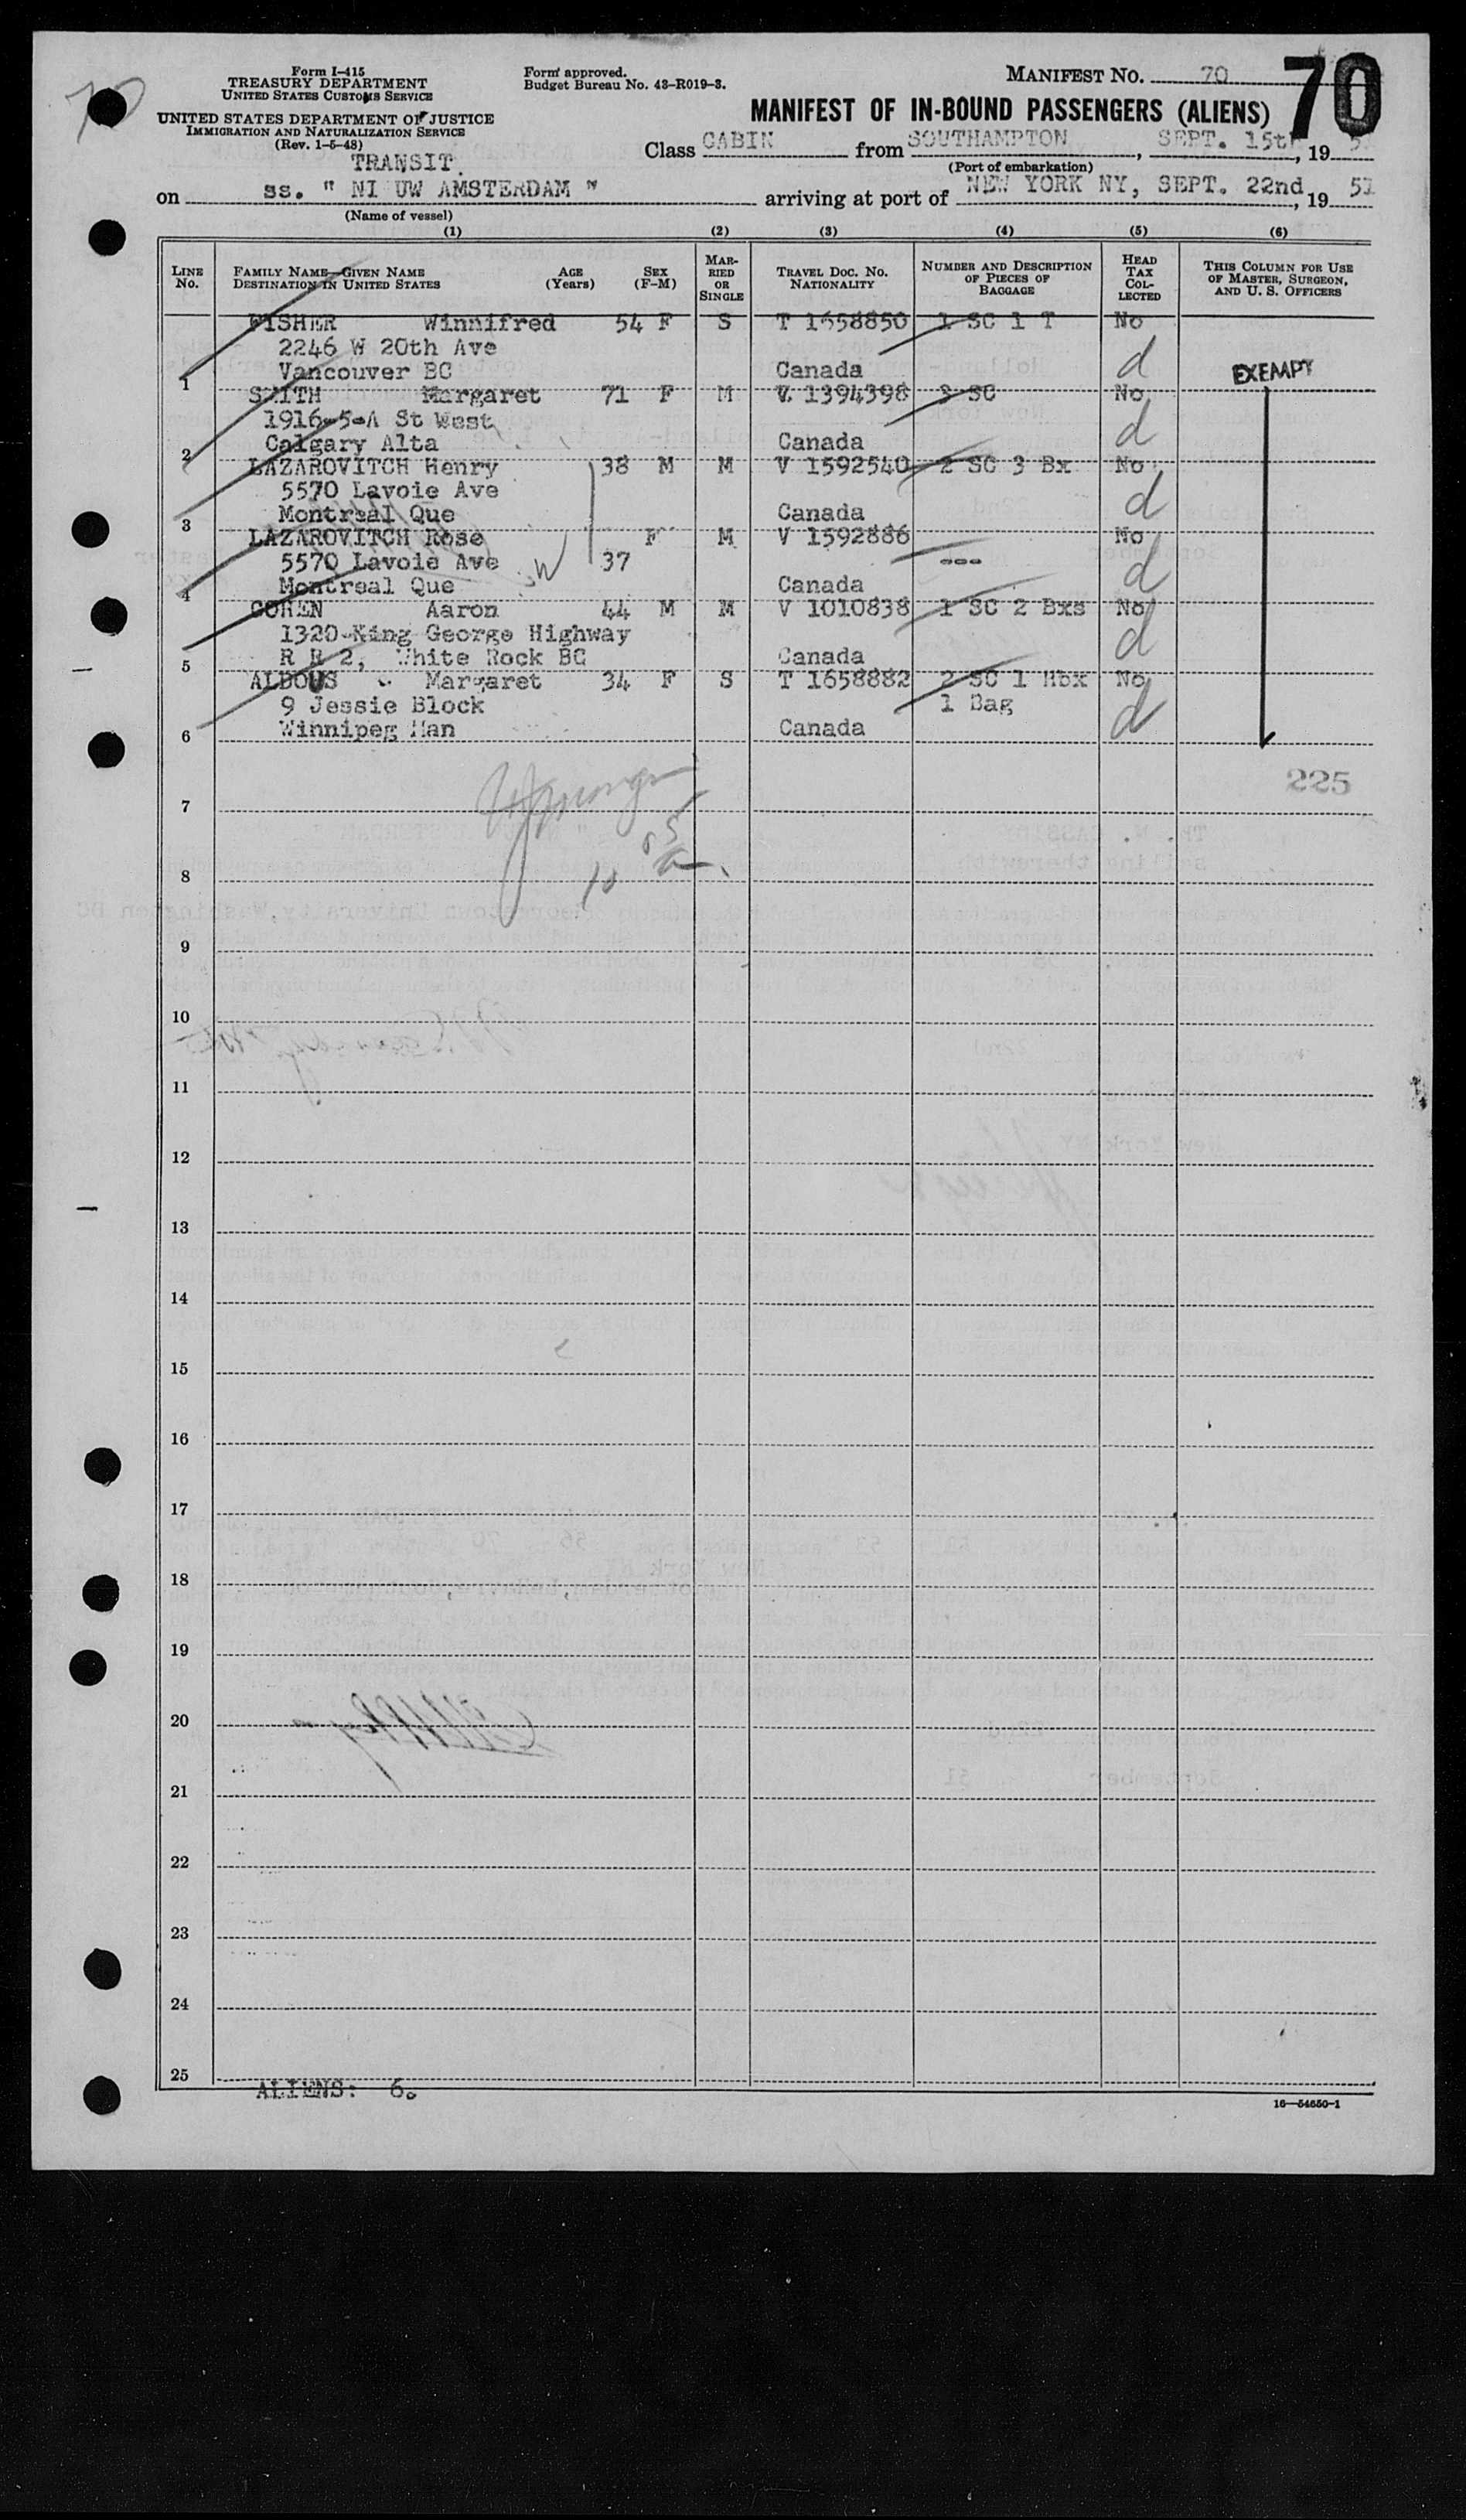 70
Form I-415
TREASURY DEPARTMENT
UNITED STATES CUSTOMS SERVICE
UNITED STATES DEPARTMENT OF JUSTICE
IMMIGRATION AND NATURALIZATION SERVICE
(Rev. 1-5-48)
Form approved.
Budget Bureau No. 43-R019-3.
MANIFEST NO. 70
70
MANIFEST OF IN-BOUND PASSENGERS (ALIENS)
Class CABIN from SOUTHAMPTON, SEPT. 15th, 19 5
(Port of embarkation)
TRANSIT.
on ss. " NI UW AMSTERDAM " arriving at port of NEW YORK NY, SEPT. 22nd, 19 51
(Name of vessel)
(1) (2) (3) (4) (5) (6)
LINE NO. FAMILY NAME—GIVEN NAME DESTINATION IN UNITED STATES AGE (Years) SEX (F-M) MARRIED OR SINGLE TRAVEL DOC. NO. NATIONALITY NUMBER AND DESCRIPTION OF PIECES OF BAGGAGE HEAD TAX COLLECTED THIS COLUMN FOR USE OF MASTER, SURGEON, AND U. S. OFFICERS
WISHER Winnifred 54 F S T 1658850 1 SC 1 T No
2246 W 20th Ave
1 Vancouver BC Canada d EXEMPT
SMITH Margaret 71 F M V 1394398 2 SC No
1916-5-A St West
2 Calgary Alta Canada d
LAZAROVITCH Henry 38 M M V 1592540 2 SC 3 Bx No
5570 Lavoie Ave
3 Montreal Que Canada d
LAZAROVITCH Rose F M V 1592886 No
5570 Lavoie Ave W 37 ---
4 Montreal Que Canada d
COHEN Aaron 44 M M V 1010838 1 SC 2 Bxs No
1320-King George Highway
5 R R 2, White Rock BC Canada d
ALDOUS Margaret 34 F S T 1658882 2 SC 1 Hbx No
9 Jessie Block 1 Bag
6 Winnipeg Man Canada d
225
7
8
9
10
11
12
13
14
15
16
17
18
19
20
21
22
23
24
25
ALIENS: 6.
16—54650-1